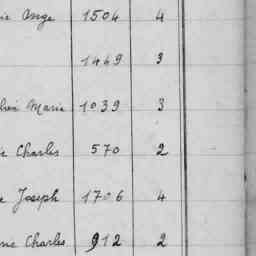 Ange 1504 4
1449 3
Marie 1039 3
Charles 570 2
Joseph 1706 4
Charles 912 2